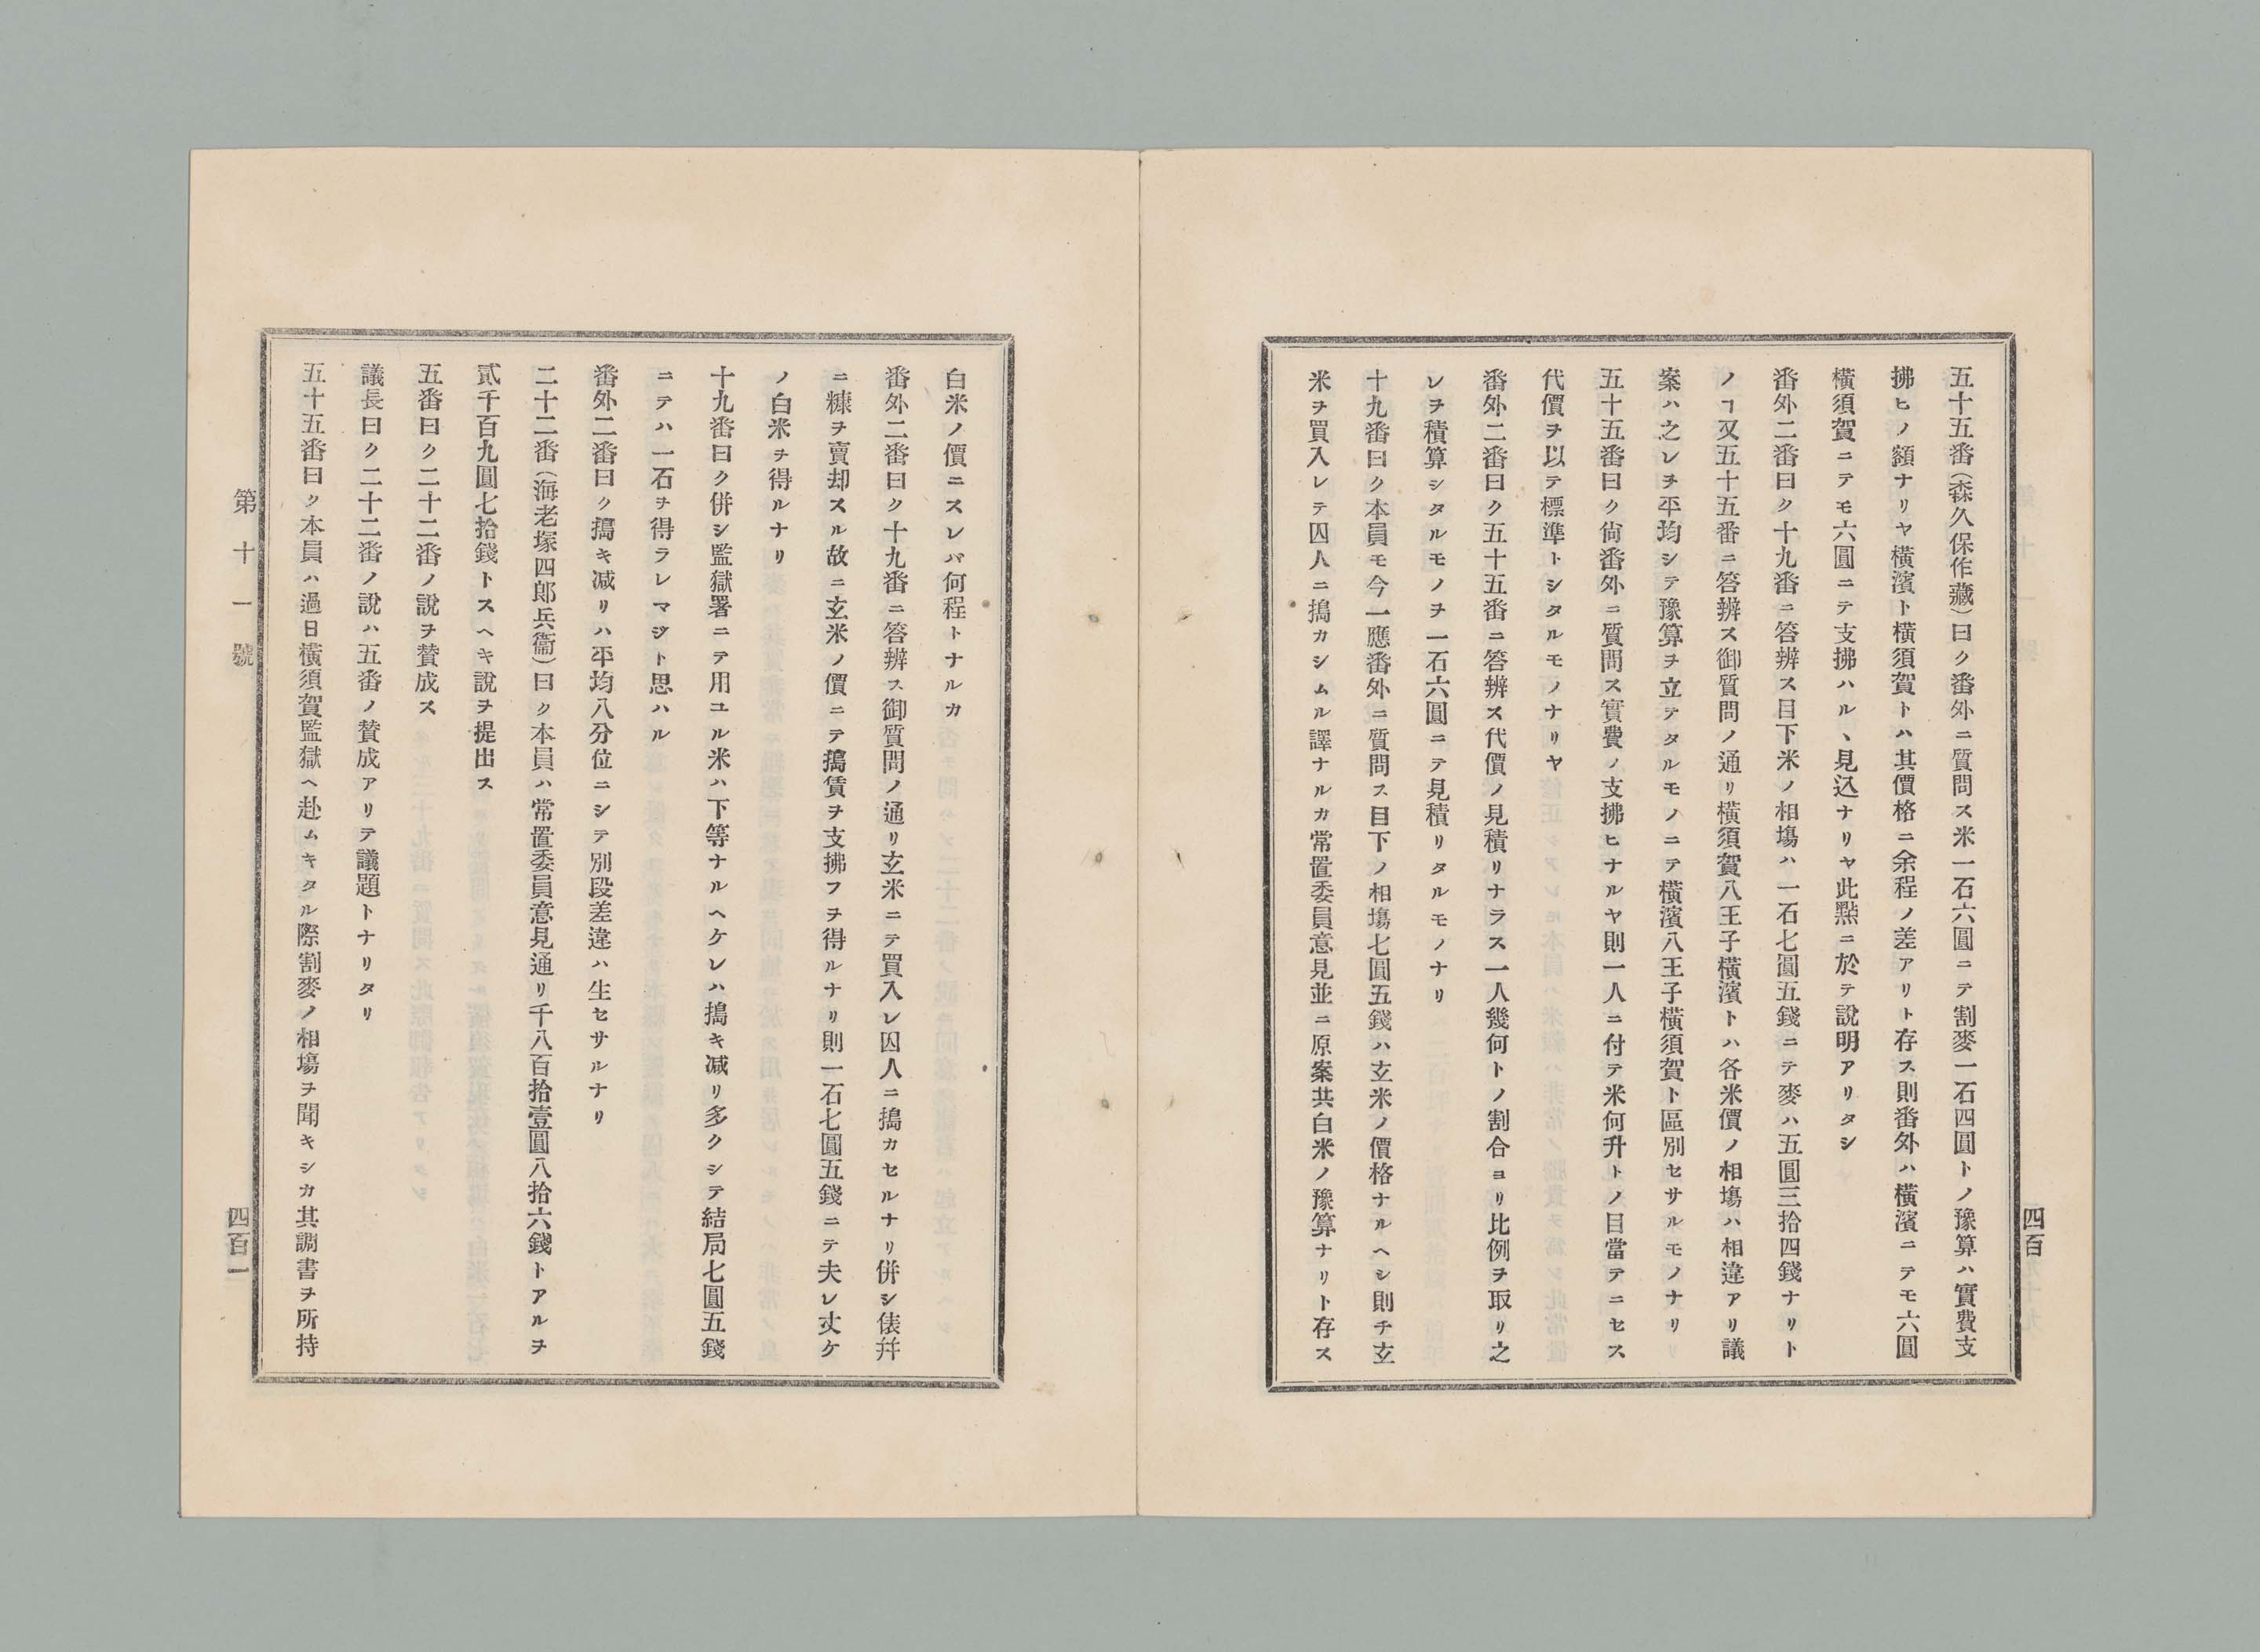 五十五番（森久保作藏）曰ク番外ニ質問ス米一石六圓ニテ割麥一石四圓トノ豫算ハ實費支
拂ヒノ額ナリヤ橫濱ト橫須賀トハ其價格ニ余程ノ差アリト存ス則番外ハ橫濱ニテモ六圓
橫須賀ニテモ六圓ニテ支拂ハル、見込ナリヤ此㸃ニ於テ說明アリタシ
番外二番曰ク十九番ニ答辨ス目下米ノ相塲ハ一石七圓五錢ニテ麥ハ五圓三拾四錢ナリト
ノヿ又五十五番ニ答辨ス御質問ノ通リ橫須賀八王子橫濱トハ各米價ノ相塲ハ相違アリ議
案ハ之レヲ平均シテ豫算ヲ立テタルモノニテ橫濱八王子橫須賀ト區別セサルモノナリ
五十五番曰ク尙番外ニ質問ス實費ノ支拂ヒナルヤ則一人ニ付テ米何升トノ目當テニセス
代價ヲ以テ標準トシタルモノナリヤ
番外二番曰ク五十五番ニ答辨ス代價ノ見積リナラス一人幾何トノ割合ヨリ比例ヲ取リ之
レヲ積算シタルモノヲ一石六圓ニテ見積リタルモノナリ
十九番曰ク本員モ今一應番外ニ質問ス目下ノ相塲七圓五錢ハ玄米ノ價格ナルヘシ則チ玄
米ヲ買入レテ囚人ニ搗カシムル譯ナルカ常置委員意見並ニ原案共白米ノ豫算ナリト存ス
四百
白米ノ價ニスレバ何程トナルカ
番外二番曰ク十九番ニ答辨ス御質問ノ通リ玄米ニテ買入レ囚人ニ搗カセルナリ併シ俵幷
ニ糠ヲ賣却スル故ニ玄米ノ價ニテ搗賃ヲ支拂フヲ得ルナリ則一石七圓五錢ニテ夫レ丈ケ
ノ白米ヲ得ルナリ
十九番曰ク併シ監獄署ニテ用ユル米ハ下等ナルヘケレハ搗キ减リ多クシテ結局七圓五錢
ニテハ一石ヲ得ラレマジト思ハル
番外二番曰ク搗キ减リハ平均八分位ニシテ別段差違ハ生セサルナリ
二十二番（海老塚四郞兵衞）曰ク本員ハ常置委員意見通リ千八百拾壹圓八拾六錢トアルヲ
貳千百九圓七拾錢トスヘキ說ヲ提出ス
五番曰ク二十二番ノ說ヲ賛成ス
議長曰ク二十二番ノ說ハ五番ノ賛成アリテ議題トナリタリ
五十五番曰ク本員ハ過日橫須賀監獄ヘ赴ムキタル際割麥ノ相塲ヲ聞キシカ其調書ヲ所持
第十一號
四百一